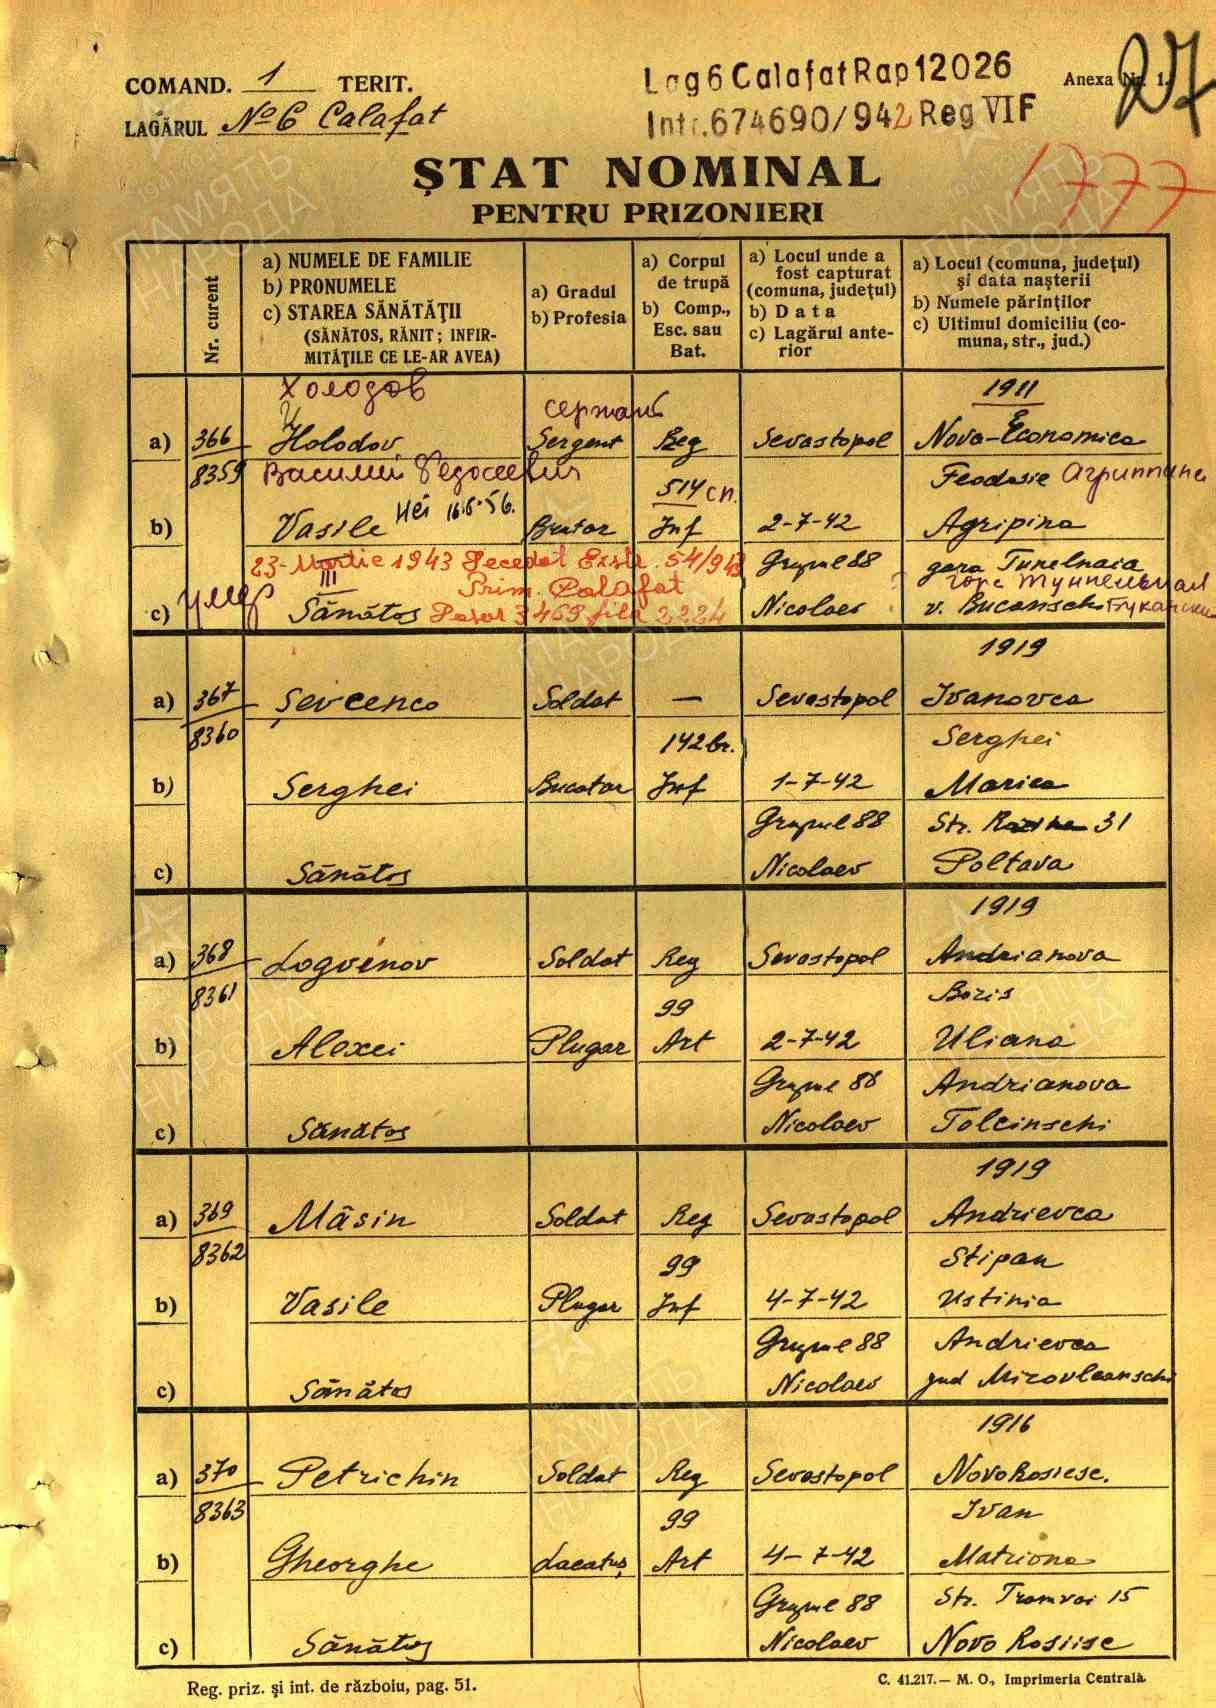 COMAND. 1 TERIT.
LAGĂRUL No 6 Calafat
Lag 6 Calafat Rap 12026
Intr. 674690/942 Reg VI F
Anexa Nr. 1.
27
1777
ȘTAT NOMINAL
PENTRU PRIZONIERI
Nr. curent
a) NUMELE DE FAMILIE
b) PRONUMELE
c) STAREA SĂNĂTĂȚII
(SĂNĂTOS, RĂNIT; INFIR-
MITĂȚILE CE LE-AR AVEA)
a) Gradul
b) Profesia
a) Corpul
de trupă
b) Comp.,
Esc. sau
Bat.
a) Locul unde a
fost capturat
(comuna, județul)
b) Data
c) Lagărul ante-
rior
a) Locul (comuna, județul)
și data nașterii
b) Numele părinților
c) Ultimul domiciliu (co-
muna, str., jud.)
Холодов
сержант
1911
a) 366 Holodov Sergent Reg Sevastopol Novo-Economica
8359 Василий Федосеевич 514 сп. Feodosie Агриппина
b) Vasile 16.6.56. Inf 2-7-42 Agripina
23-Martie 1943 Decedat Extr. 54/943 Grupul 88 gara Tunelnaia
III Prim. Calafat
c) умер Sănătos 3469 fila 2224 Nicolaev v. Bucanschi
1919
a) 367 Șevcenco Soldat — Sevastopol Ivanovca
8360 142 br. Serghei
b) Serghei Bucatar Inf 1-7-42 Marica
Grupul 88 Str. 31
c) Sănătos Nicolaev Poltava
1919
a) 368 Logvinov Soldat Reg Sevastopol Andrianova
8361 99 Boris
b) Alexei Plugar Art 2-7-42 Uliana
Grupul 88 Andrianova
c) Sănătos Nicolaev Tolcinschi
1919
a) 369 Mâsin Soldat Reg Sevastopol Andrievca
8362 99 Stipan
b) Vasile Plugar Inf 4-7-42 Ustinia
Grupul 88 Andrievca
c) Sănătos Nicolaev jud Mirovleanschi
1916
a) 370 Petrichin Soldat Reg Sevastopol Novo Rosiesc.
8363 99 Ivan
b) Gheorghe Lacatuș Art 4-7-42 Matriona
Grupul 88 Str. Tramvai 15
c) Sănătos Nicolaev Novo Rosiisc
Reg. priz. și int. de război, pag. 51.
C. 41.217.— M. O., Imprimeria Centrală.